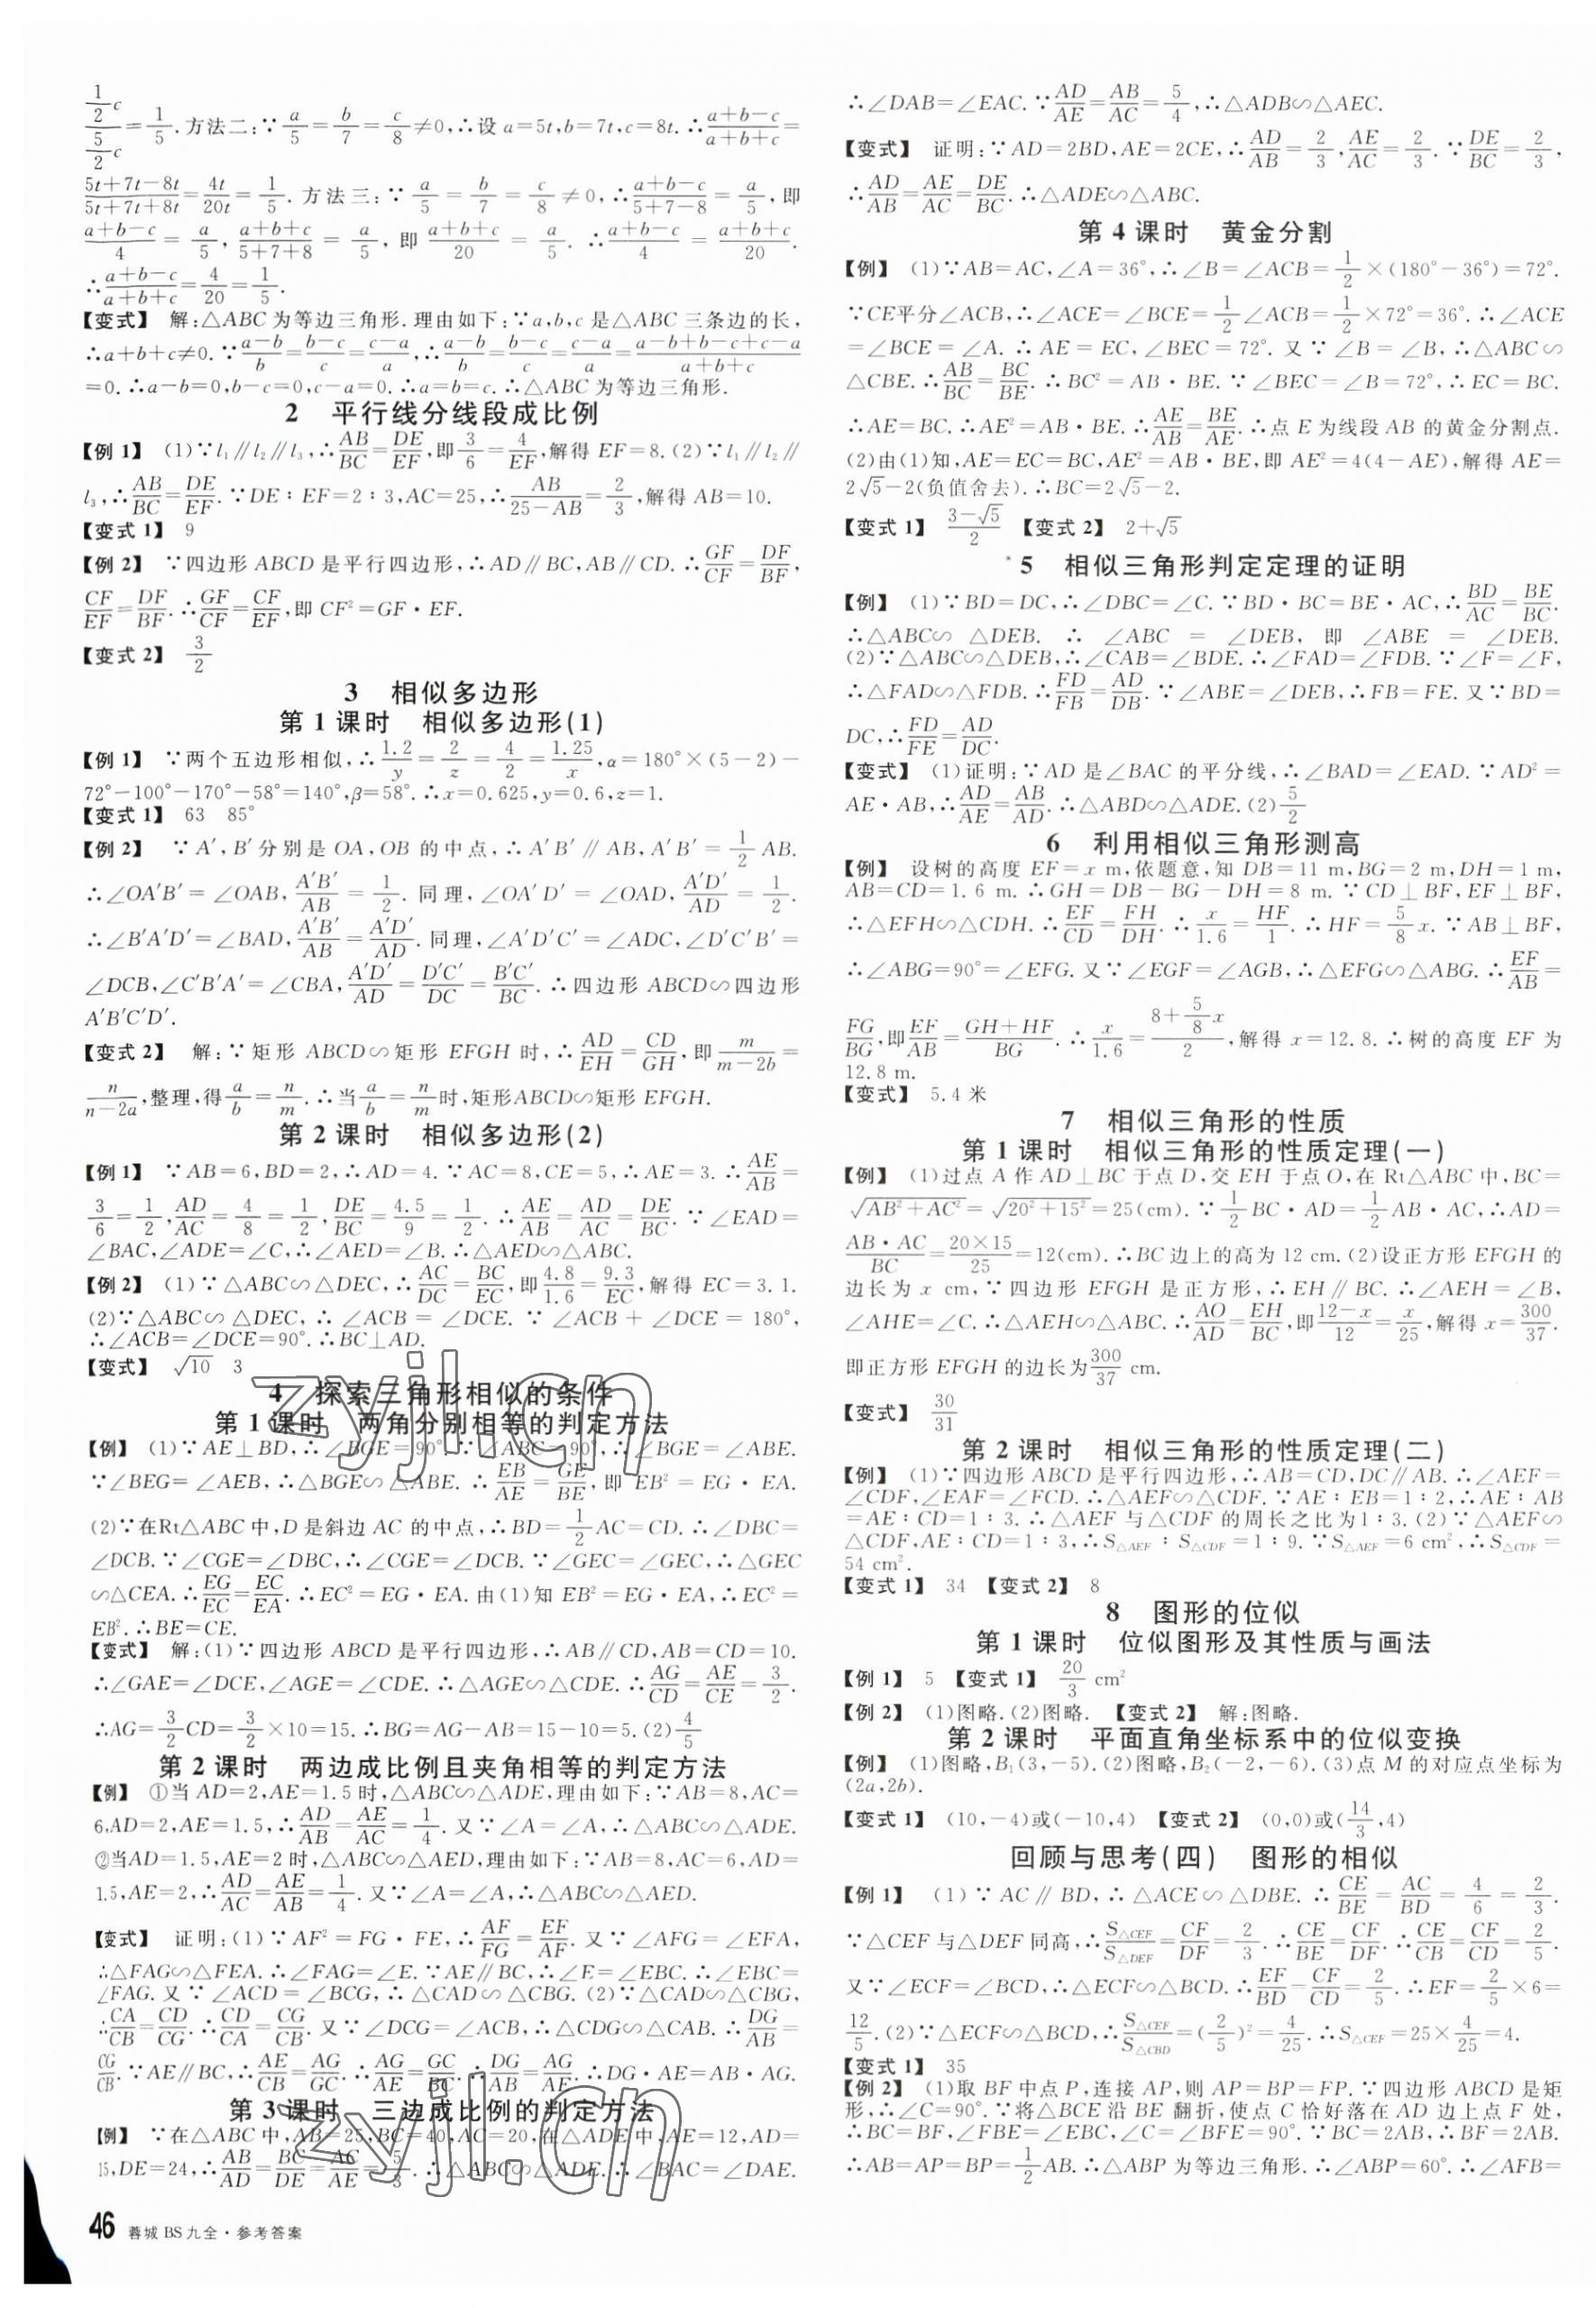 ½c/(5/2)c=1/5.方法二:∵a/5=b/7=c/8≠0,∴设a=5t,b=7t,c=8t.∴(a+b-c)/(a+b+c)=
(5t+7t-8t)/(5t+7t+8t)=4t/20t=1/5.方法三:∵a/5=b/7=c/8≠0,∴(a+b-c)/(5+7-8)=a/5,即
(a+b-c)/4=a/5,(a+b+c)/(5+7+8)=a/5,即(a+b+c)/20=a/5.∴(a+b-c)/4=(a+b+c)/20.
∴(a+b-c)/(a+b+c)=4/20=1/5.
【变式】 解:△ABC为等边三角形.理由如下:∵a,b,c是△ABC三条边的长,
∴a+b+c≠0.∵(a-b)/b=(b-c)/c=(c-a)/a,∴(a-b)/b=(b-c)/c=(c-a)/a=(a-b+b-c+c-a)/(a+b+c)
=0.∴a-b=0,b-c=0,c-a=0.∴a=b=c.∴△ABC为等边三角形.
2 平行线分线段成比例
【例1】 (1)∵l₁∥l₂∥l₃,∴AB/BC=DE/EF,即3/6=4/EF,解得EF=8.(2)∵l₁∥l₂∥
l₃,∴AB/BC=DE/EF.∵DE∶EF=2∶3,AC=25,∴AB/(25-AB)=2/3,解得AB=10.
【变式1】 9
【例2】 ∵四边形ABCD是平行四边形,∴AD∥BC,AB∥CD.∴GF/CF=DF/BF,
CF/EF=DF/BF.∴GF/CF=CF/EF,即CF²=GF·EF.
【变式2】 3/2
3 相似多边形
第1课时 相似多边形(1)
【例1】 ∵两个五边形相似,∴1.2/y=2/z=4/2=1.25/x,α=180°×(5-2)-
72°-100°-170°-58°=140°,β=58°.∴x=0.625,y=0.6,z=1.
【变式1】 63 85°
【例2】 ∵A′,B′分别是OA,OB的中点,∴A′B′∥AB,A′B′=1/2AB.
∴∠OA′B′=∠OAB,A′B′/AB=1/2.同理,∠OA′D′=∠OAD,A′D′/AD=1/2.
∴∠B′A′D′=∠BAD,A′B′/AB=A′D′/AD.同理,∠A′D′C′=∠ADC,∠D′C′B′=
∠DCB,∠C′B′A′=∠CBA,A′D′/AD=D′C′/DC=B′C′/BC.∴四边形ABCD∽四边形
A′B′C′D′.
【变式2】 解:∵矩形ABCD∽矩形EFGH时,∴AD/EH=CD/GH,即m/(m-2b)=
n/(n-2a),整理,得a/b=n/m.∴当a/b=n/m时,矩形ABCD∽矩形EFGH.
第2课时 相似多边形(2)
【例1】 ∵AB=6,BD=2,∴AD=4.∵AC=8,CE=5,∴AE=3.∴AE/AB=
3/6=1/2,AD/AC=4/8=1/2,DE/BC=4.5/9=1/2.∴AE/AB=AD/AC=DE/BC.∵∠EAD=
∠BAC,∠ADE=∠C,∴∠AED=∠B.∴△AED∽△ABC.
【例2】 (1)∵△ABC∽△DEC,∴AC/DC=BC/EC,即4.8/1.6=9.3/EC,解得EC=3.1.
(2)∵△ABC∽△DEC,∴∠ACB=∠DCE.∵∠ACB+∠DCE=180°,
∴∠ACB=∠DCE=90°.∴BC⊥AD.
【变式】 √10 3
4 探索三角形相似的条件
第1课时 两角分别相等的判定方法
【例】 (1)∵AE⊥BD,∴∠BGE=90°.∵∠ABC=90°,∴∠BGE=∠ABE.
∵∠BEG=∠AEB,∴△BGE∽△ABE.∴EB/AE=GE/BE,即EB²=EG·EA.
(2)∵在Rt△ABC中,D是斜边AC的中点,∴BD=1/2AC=CD.∴∠DBC=
∠DCB.∵∠CGE=∠DBC,∴∠CGE=∠DCB.∵∠GEC=∠GEC,∴△GEC
∽△CEA.∴EG/EC=EC/EA.∴EC²=EG·EA.由(1)知EB²=EG·EA,∴EC²=
EB².∴BE=CE.
【变式】 解:(1)∵四边形ABCD是平行四边形,∴AB∥CD,AB=CD=10.
∴∠GAE=∠DCE,∠AGE=∠CDE.∴△AGE∽△CDE.∴AG/CD=AE/CE=3/2.
∴AG=3/2CD=3/2×10=15.∴BG=AG-AB=15-10=5.(2)4/5
第2课时 两边成比例且夹角相等的判定方法
【例】 ①当AD=2,AE=1.5时,△ABC∽△ADE,理由如下:∵AB=8,AC=
6,AD=2,AE=1.5,∴AD/AB=AE/AC=1/4.又∵∠A=∠A,∴△ABC∽△ADE.
②当AD=1.5,AE=2时,△ABC∽△AED,理由如下:∵AB=8,AC=6,AD=
1.5,AE=2,∴AD/AC=AE/AB=1/4.又∵∠A=∠A,∴△ABC∽△AED.
【变式】 证明:(1)∵AF²=FG·FE,∴AF/FG=EF/AF.又∵∠AFG=∠EFA,
∴△FAG∽△FEA.∴∠FAG=∠E.∵AE∥BC,∴∠E=∠EBC.∴∠EBC=
∠FAG.又∵∠ACD=∠BCG,∴△CAD∽△CBG.(2)∵△CAD∽△CBG,
∴CA/CB=CD/CG.∴CD/CA=CG/CB.又∵∠DCG=∠ACB,∴△CDG∽△CAB.∴DG/AB=
CG/CB.∵AE∥BC,∴AE/CB=AG/GC.∴AG/AE=GC/BC.∴DG/AB=AG/AE.∴DG·AE=AB·AG.
第3课时 三边成比例的判定方法
【例】 ∵在△ABC中,AB=25,BC=40,AC=20,在△ADE中,AE=12,AD=
15,DE=24,∴AB/AD=BC/DE=AC/AE=5/3.∴△ABC∽△ADE.∴∠BAC=∠DAE.
46 蓉城BS九全·参考答案
∴∠DAB=∠EAC.∵AD/AE=AB/AC=5/4,∴△ADB∽△AEC.
【变式】 证明:∵AD=2BD,AE=2CE,∴AD/AB=2/3,AE/AC=2/3.∵DE/BC=2/3,
∴AD/AB=AE/AC=DE/BC.∴△ADE∽△ABC.
第4课时 黄金分割
【例】 (1)∵AB=AC,∠A=36°,∴∠B=∠ACB=1/2×(180°-36°)=72°.
∵CE平分∠ACB,∴∠ACE=∠BCE=1/2∠ACB=1/2×72°=36°.∴∠ACE
=∠BCE=∠A.∴AE=EC,∠BEC=72°.又∵∠B=∠B,∴△ABC∽
△CBE.∴AB/BC=BC/BE.∴BC²=AB·BE.∵∠BEC=∠B=72°,∴EC=BC.
∴AE=BC.∴AE²=AB·BE.∴AE/AB=BE/AE.∴点E为线段AB的黄金分割点.
(2)由(1)知,AE=EC=BC,AE²=AB·BE,即AE²=4(4-AE),解得AE=
2√5-2(负值舍去).∴BC=2√5-2.
【变式1】 (3-√5)/2 【变式2】 2+√5
5 相似三角形判定定理的证明
【例】 (1)∵BD=DC,∴∠DBC=∠C.∵BD·BC=BE·AC,∴BD/AC=BE/BC.
∴△ABC∽△DEB.∴∠ABC=∠DEB,即∠ABE=∠DEB.
(2)∵△ABC∽△DEB,∴∠CAB=∠BDE.∴∠FAD=∠FDB.∵∠F=∠F,
∴△FAD∽△FDB.∴FD/FB=AD/DB.∵∠ABE=∠DEB,∴FB=FE.又∵BD=
DC,∴FD/FE=AD/DC.
【变式】 (1)证明:∵AD是∠BAC的平分线,∴∠BAD=∠EAD.∵AD²=
AE·AB,∴AD/AE=AB/AD.∴△ABD∽△ADE.(2)5/2
6 利用相似三角形测高
【例】 设树的高度EF=x m,依题意,知DB=11 m,BG=2 m,DH=1 m,
AB=CD=1.6 m.∴GH=DB-BG-DH=8 m.∵CD⊥BF,EF⊥BF,
∴△EFH∽△CDH.∴EF/CD=FH/DH.∴x/1.6=HF/1.∴HF=5/8x.∵AB⊥BF,
∴∠ABG=90°=∠EFG.又∵∠EGF=∠AGB,∴△EFG∽△ABG.∴EF/AB=
FG/BG,即EF/AB=(GH+HF)/BG.∴x/1.6=(8+5/8x)/2,解得x=12.8.∴树的高度EF为
12.8 m.
【变式】 5.4米
7 相似三角形的性质
第1课时 相似三角形的性质定理(一)
【例】 (1)过点A作AD⊥BC于点D,交EH于点O,在Rt△ABC中,BC=
√(AB²+AC²)=√(20²+15²)=25(cm).∵1/2BC·AD=1/2AB·AC,∴AD=
AB·AC/BC=20×15/25=12(cm).∴BC边上的高为12 cm.(2)设正方形EFGH的
边长为x cm,∵四边形EFGH是正方形,∴EH∥BC.∴∠AEH=∠B,
∠AHE=∠C.∴△AEH∽△ABC.∴AO/AD=EH/BC,即(12-x)/12=x/25,解得x=300/37.
即正方形EFGH的边长为300/37 cm.
【变式】 30/31
第2课时 相似三角形的性质定理(二)
【例】 (1)∵四边形ABCD是平行四边形,∴AB=CD,DC∥AB.∴∠AEF=
∠CDF,∠EAF=∠FCD.∴△AEF∽△CDF.∵AE∶EB=1∶2,∴AE∶AB
=AE∶CD=1∶3.∴△AEF与△CDF的周长之比为1∶3.(2)∵△AEF∽
△CDF,AE∶CD=1∶3,∴S△AEF∶S△CDF=1∶9.∵S△AEF=6 cm²,∴S△CDF=
54 cm².
【变式1】 34 【变式2】 8
8 图形的位似
第1课时 位似图形及其性质与画法
【例1】 5 【变式1】 20/3 cm²
【例2】 (1)图略.(2)图略. 【变式2】 解:图略.
第2课时 平面直角坐标系中的位似变换
【例】 (1)图略,B₁(3,-5).(2)图略,B₂(-2,-6).(3)点M的对应点坐标为
(2a,2b).
【变式1】 (10,-4)或(-10,4) 【变式2】 (0,0)或(14/3,4)
回顾与思考(四) 图形的相似
【例1】 (1)∵AC∥BD,∴△ACE∽△DBE.∴CE/BE=AC/BD=4/6=2/3.
∵△CEF与△DEF同高,∴S△CEF/S△DEF=CF/DF=2/3.∴CE/BE=CF/DF.∴CE/CB=CF/CD=2/5.
又∵∠ECF=∠BCD,∴△ECF∽△BCD.∴EF/BD=CF/CD=2/5.∴EF=2/5×6=
12/5.(2)∵△ECF∽△BCD,∴S△CEF/S△CBD=(2/5)²=4/25.∴S△CEF=25×4/25=4.
【变式1】 35
【例2】 (1)取BF中点P,连接AP,则AP=BP=FP.∵四边形ABCD是矩
形,∴∠C=90°.∵将△BCE沿BE翻折,使点C恰好落在AD边上点F处,
∴BC=BF,∠FBE=∠EBC,∠C=∠BFE=90°.∵BC=2AB,∴BF=2AB.
∴AB=AP=BP=1/2AB.∴△ABP为等边三角形.∴∠ABP=60°.∴∠AFB=
zyjl.cn
zyjl.cn